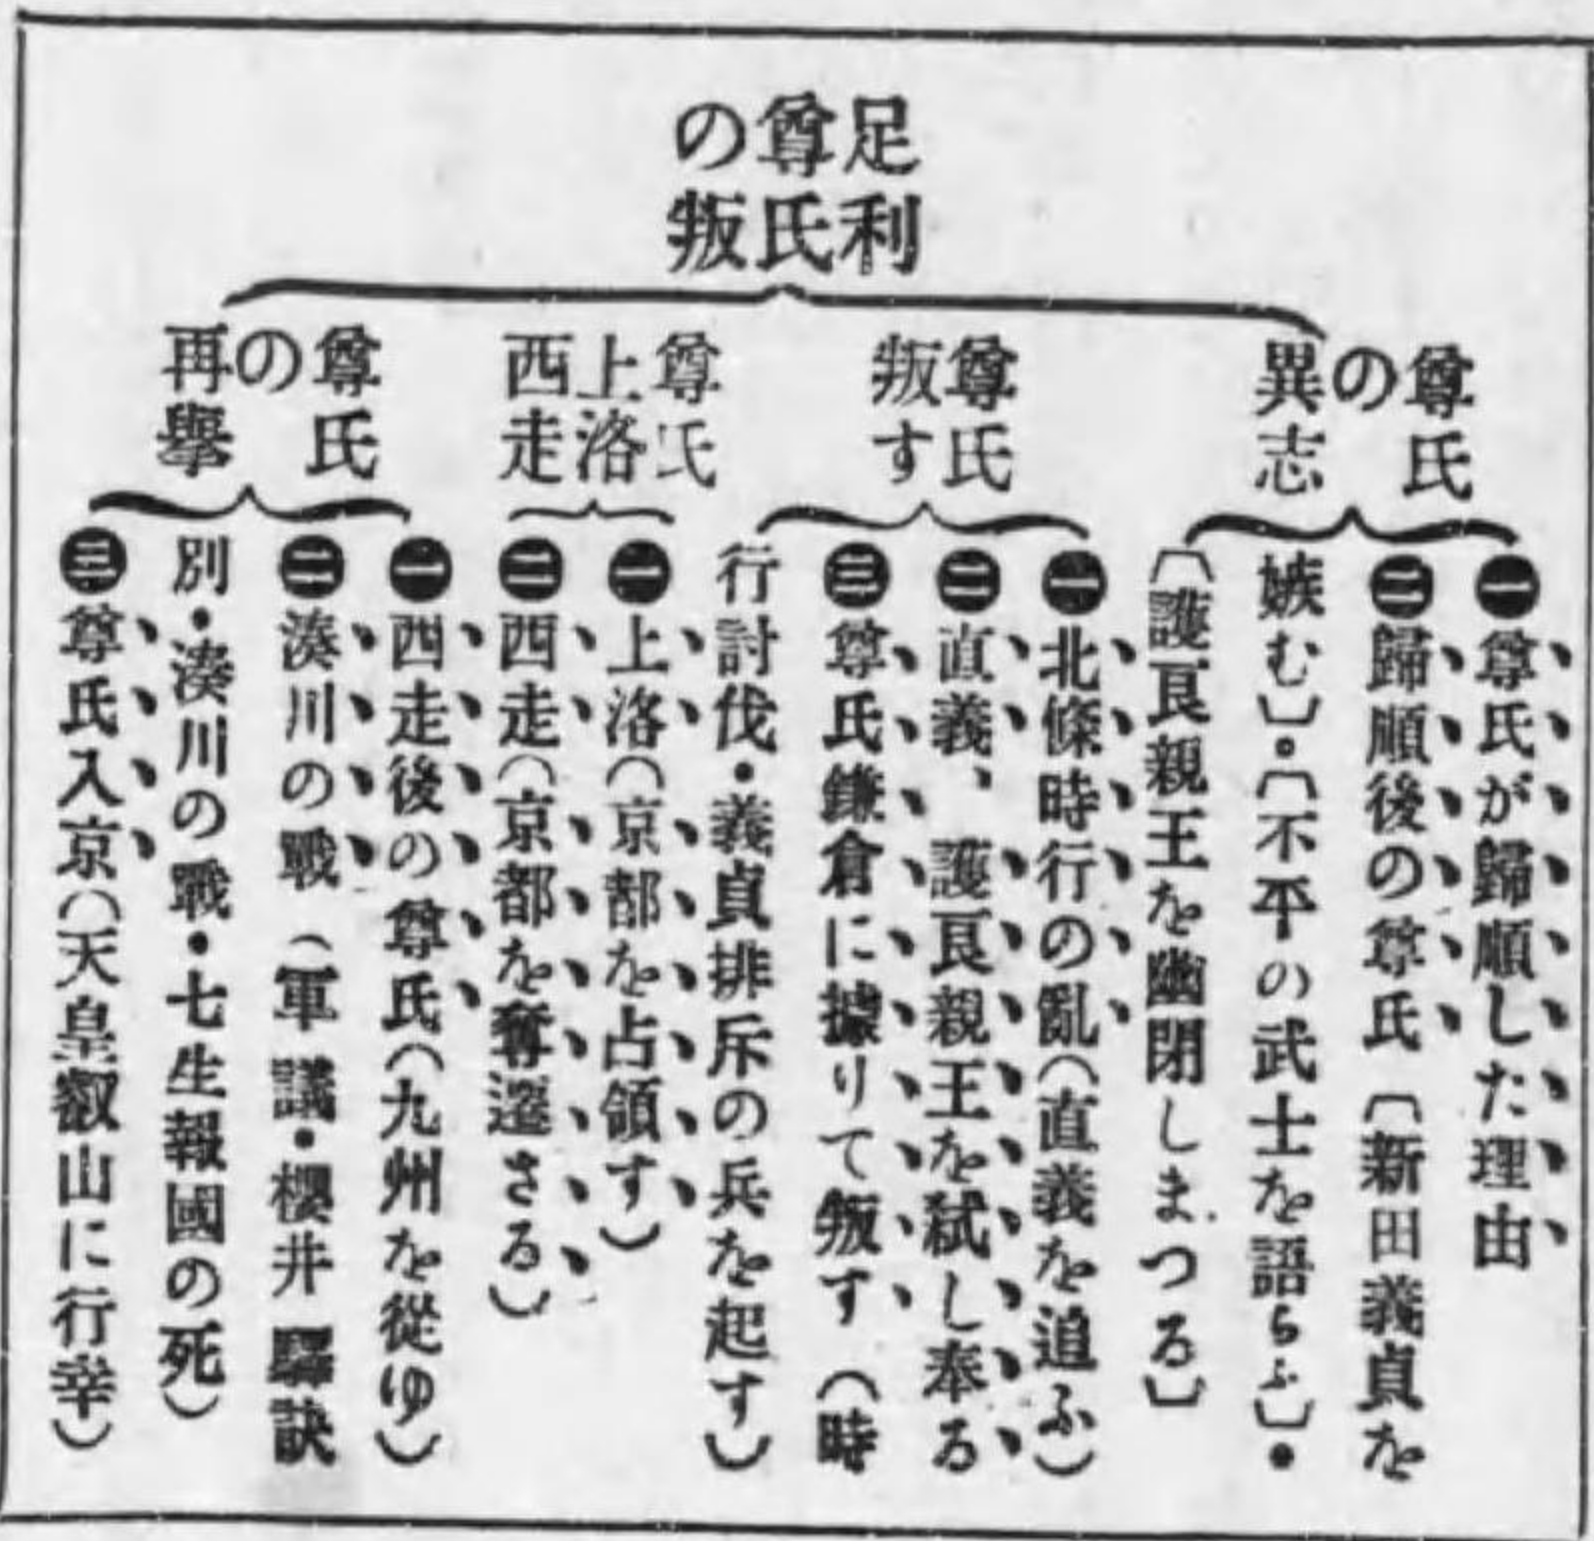 足利
尊氏
の叛
尊氏
の
異志
㊀尊氏が歸順した理由
㊁歸順後の尊氏〔新田義貞を
嫉む〕。〔不平の武士を語らふ〕・
〔護良親王を幽閉しまつる〕
尊氏
叛す
㊀北條時行の亂(直義を追ふ)
㊁直義、護良親王を弑し奉る
㊂尊氏鎌倉に據りて叛す(時
行討伐・義貞排斥の兵を起す)
尊氏
上洛
西走
㊀上洛(京都を占領す)
㊁西走(京都を奪還さる)
尊氏
の
再擧
㊀西走後の尊氏(九州を從ゆ)
㊁湊川の戰(軍議・櫻井驛訣
別・湊川の戰・七生報國の死)
㊂尊氏入京(天皇叡山に行幸)